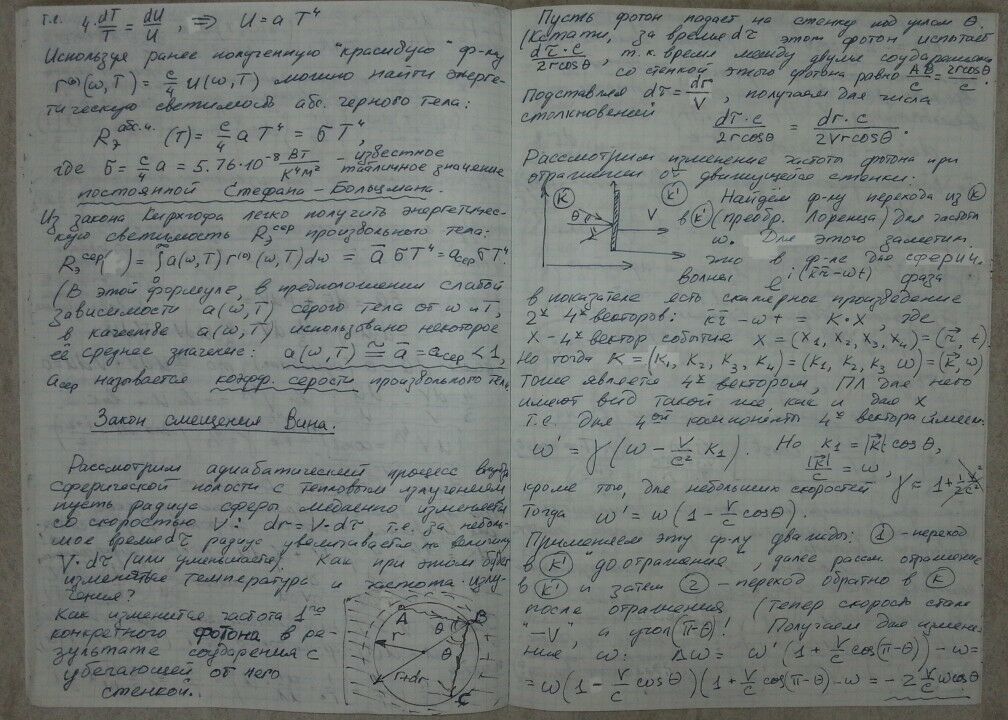 т.е. 4 dT/T = dU/U, ⇒ U = a T⁴
Используя ранее полученную "красивую" ф-лу
r⁽⁰⁾(ω,T) = c/4 u(ω,T) можно найти энерге-
тическую светимость абс. черного тела:
Rэ абс.ч. (T) = c/4 a T⁴ = σ T⁴,
где σ = c/4 a = 5.76·10⁻⁸ Вт/К⁴м² – известное табличное значение
постоянной Стефана – Больцмана.
Из закона Кирхгофа легко получить энергетичес-
кую светимость Rэ сер произвольного тела:
Rэ сер( ) = ∫a(ω,T) r⁽⁰⁾(ω,T) dω = ā σ T⁴ = aсер σ T⁴
(В этой формуле, в предположении слабой
зависимости a(ω,T) серого тела от ω и T,
в качестве a(ω,T) использовано некоторое
её среднее значение: a(ω,T) ≅ ā = aсер < 1,
aсер называется коэфф. серости произвольного тела.
Закон смещения Вина.
Рассмотрим адиабатический процесс внутри
сферической полости с тепловым излучением
пусть радиус сферы медленно изменяется
со скоростью V: dr = V·dτ т.е. за неболь-
шое время dτ радиус увеличивается на величину
V·dτ (или уменьшается). Как при этом будет
изменятся температура и частота излу-
чения?
Как изменится частота 1го
конкретного фотона в ре-
зультате соударения с
убегающей от него
стенкой..
A B r θ θ r+dr C
Пусть фотон падает на стенку под углом θ.
(Кстати, за время dτ этот фотон испытает
dτ·c/2rcosθ, т.к. время между двумя соударениями
со стенкой этого фотона равно AB/c = 2rcosθ/c.
Подставляя dτ = dr/V, получаем для числа
столкновений dτ·c/2rcosθ = dr·c/2Vrcosθ.
Рассмотрим изменение частоты фотона при
отражении от движущейся стенки.
K K' θ V
Найдём ф-лу перехода из K
в K' (преобр. Лоренца) для частоты
ω. Для этого заметим,
что в ф-ле для сферич.
волны e^i(k̄r̄-ωt) фаза
в показателе есть скалярное произведение
2х 4х векторов: k̄r̄ - ωt = K·X, где
X - 4х вектор события X = (x₁, x₂, x₃, x₄) = (r̄, t).
Но тогда K = (K₁, K₂, K₃, K₄) = (K₁, K₂, K₃ ω) = (k̄, ω)
тоже является 4х вектором, ПЛ для него
имеют вид такой же, как и для X
т.е. для 4ой компоненты 4х вектора имеем:
ω' = γ(ω - V/c² K₁). Но K₁ = |k̄| cos θ,
|k̄|/c = ω,
кроме того, для небольших скоростей γ = 1 + 1/2 V²/c²
Тогда ω' = ω(1 - V/c cosθ).
Применяем эту ф-лу дважды: 1 - переход
в K' до отражения, далее рассм. отражение
в K' и затем 2 - переход обратно в K
после отражения (теперь скорость стала
"-V" и угол (π-θ)! Получаем для измене-
ния ω: Δω = ω'(1 + V/c cos(π-θ)) - ω =
= ω(1 - V/c cosθ)(1 + V/c cos(π-θ) - ω = - 2 V/c ω cosθ